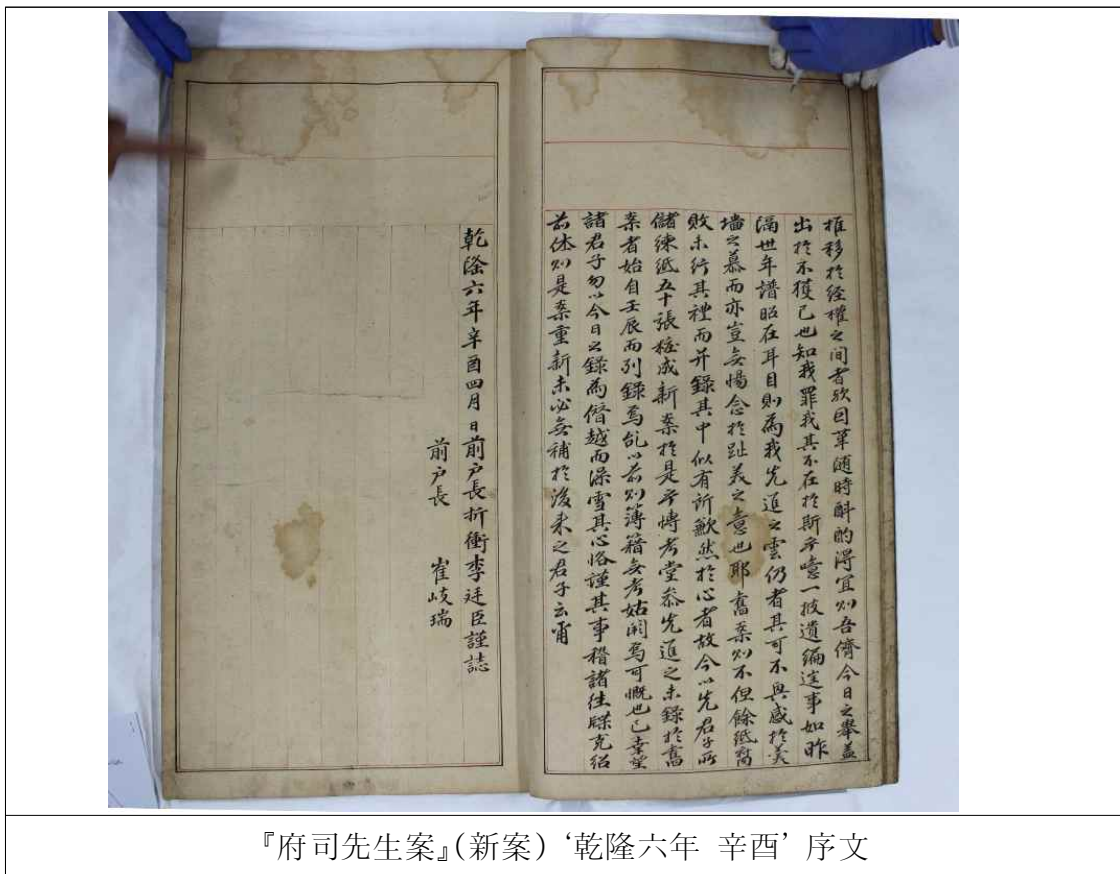 推移於經權之間者歟因革隨時斟酌得宜則吾儕今日之擧盖
出於不獲已也知我罪我其不在於斯乎噫一披遺編往事如昨
隔世年譜昭在耳目則為我先進之雲仍者其可不興感於羹
墻之慕而亦豈無惕念於趾美之意也耶舊案則不但餘紙窄
敗未行其禮而并錄其中似有所歉然於心者故今以先君子所
儲練紙五十張粧成新案於是乎慱考堂叅先進之未錄於舊
案者始自壬辰而列錄焉乱以前則簿籍無考姑闕焉可慨也已幸望
諸君子勿以今日之錄為僭越而澡雪其心恪謹其事稽諸徃牒克紹
前休則是案重新未必無補於後來之君子云爾
乾隆六年辛酉四月日前户長折衝李廷臣謹誌
前户長 崔岐瑞
『府司先生案』(新案) ‘乾隆六年 辛酉’ 序文